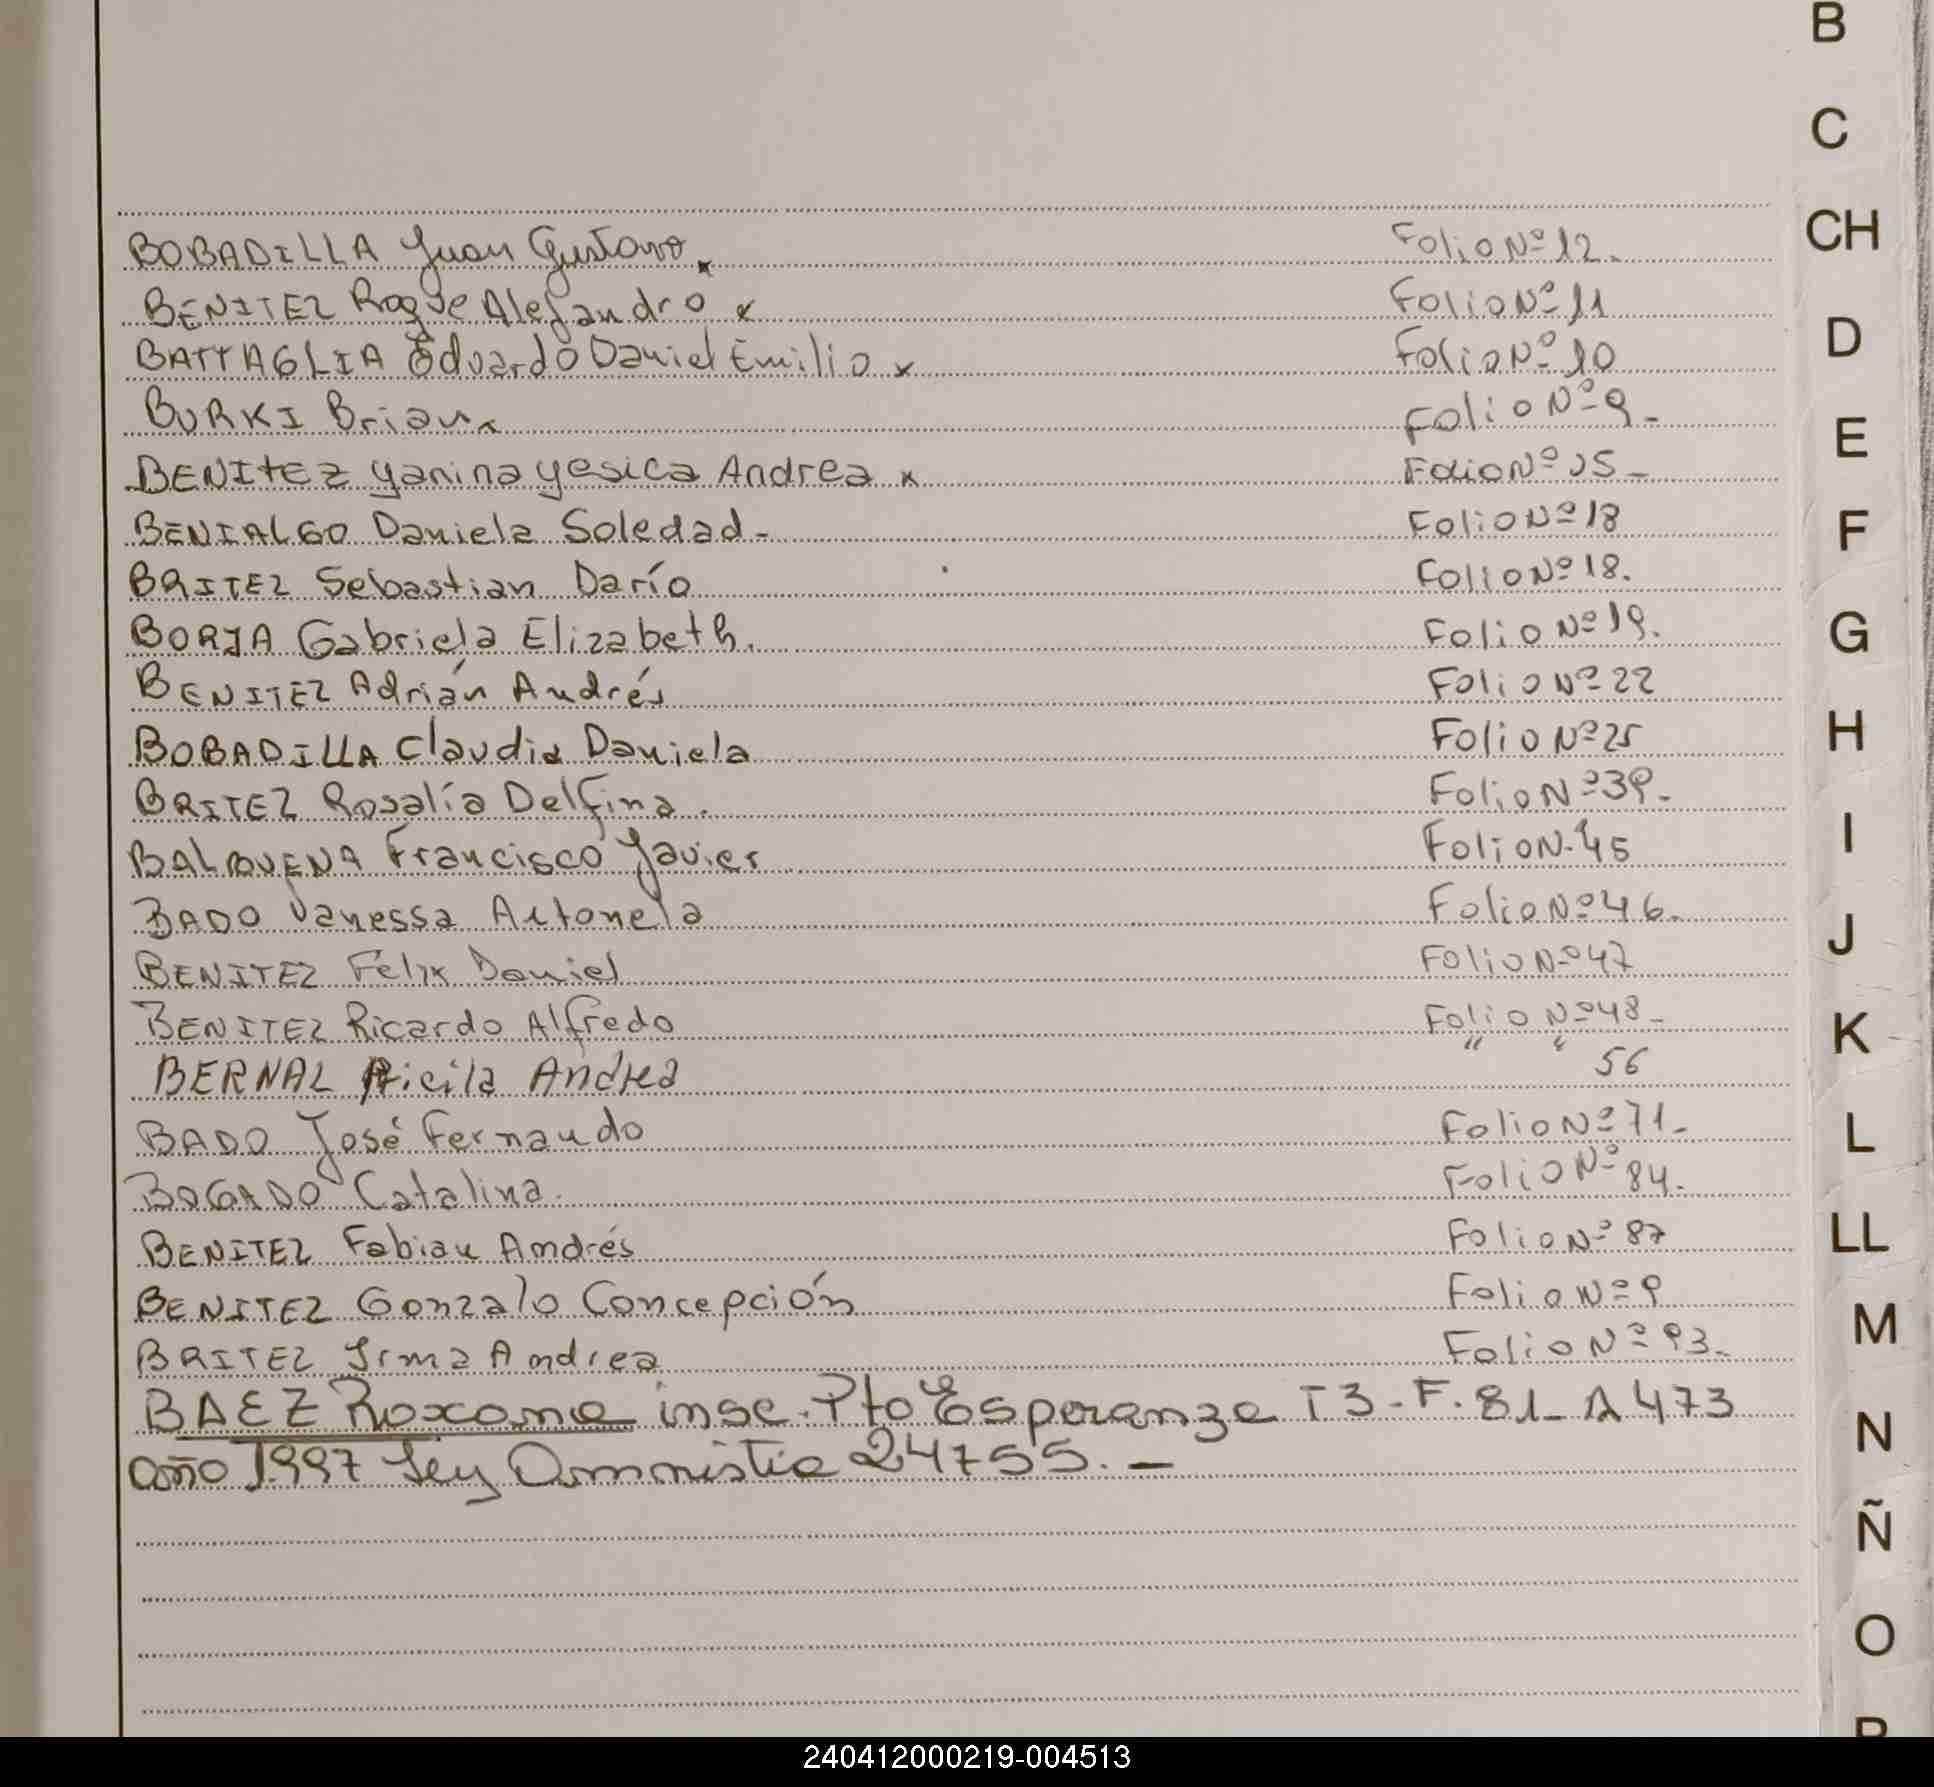 B
C
CH
D
E
F
G
H
I
J
K
L
LL
M
N
Ñ
O
P
BOBADILLA Juan Gustavo x Folio Nº 12.
BENITEZ Roque Alejandro x Folio Nº 11
BATTAGLIA Eduardo Daniel Emilio x Folio Nº 10
BURKI Brian x Folio Nº 9-
BENItEz yanina yesica Andrea x Folio Nº 15-
BENIALGO Daniela Soledad- Folio Nº 18
BRITEZ Sebastian Darío Folio Nº 18.
BORJA Gabriela Elizabeth. Folio Nº 19.
BENITEZ Adrián Andrés Folio Nº 22
BOBADILLA Claudia Daniela Folio Nº 25
BRITEZ Rosalía Delfina. Folio Nº 39-
BALBUENA Francisco Javier Folio Nº 45
BADO Vanessa Antonela Folio Nº 46.
BENITEZ Felix Daniel Folio Nº 47
BENITEZ Ricardo Alfredo Folio Nº 48-
BERNAL Andrea " " 56
BADO José Fernando Folio Nº 71-
BOGADO Catalina. Folio Nº 84.
BENITEZ Fabian Andrés Folio Nº 87
BENITEZ Gonzalo Concepción Folio Nº 9
BRITEZ Irma Andrea Folio Nº 93-
BAEZ Roxana insc. Pto Esperanza T3-F.81-A 473
año 1997 Ley Ammistia 24755.-
240412000219-004513